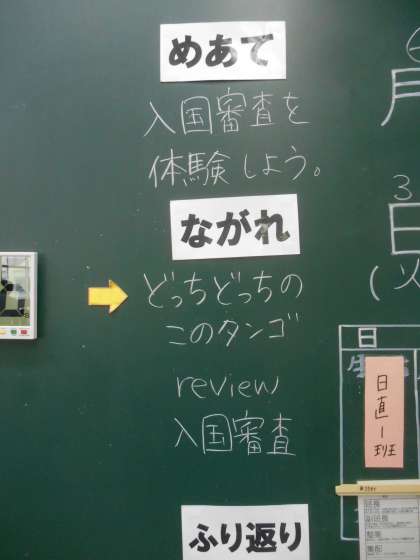 めあて
入国審査を
体験しよう。
ながれ
どっちどっちの
このタンゴ
review
入国審査
ふり返り
月
3
日
(火
日
日直1班